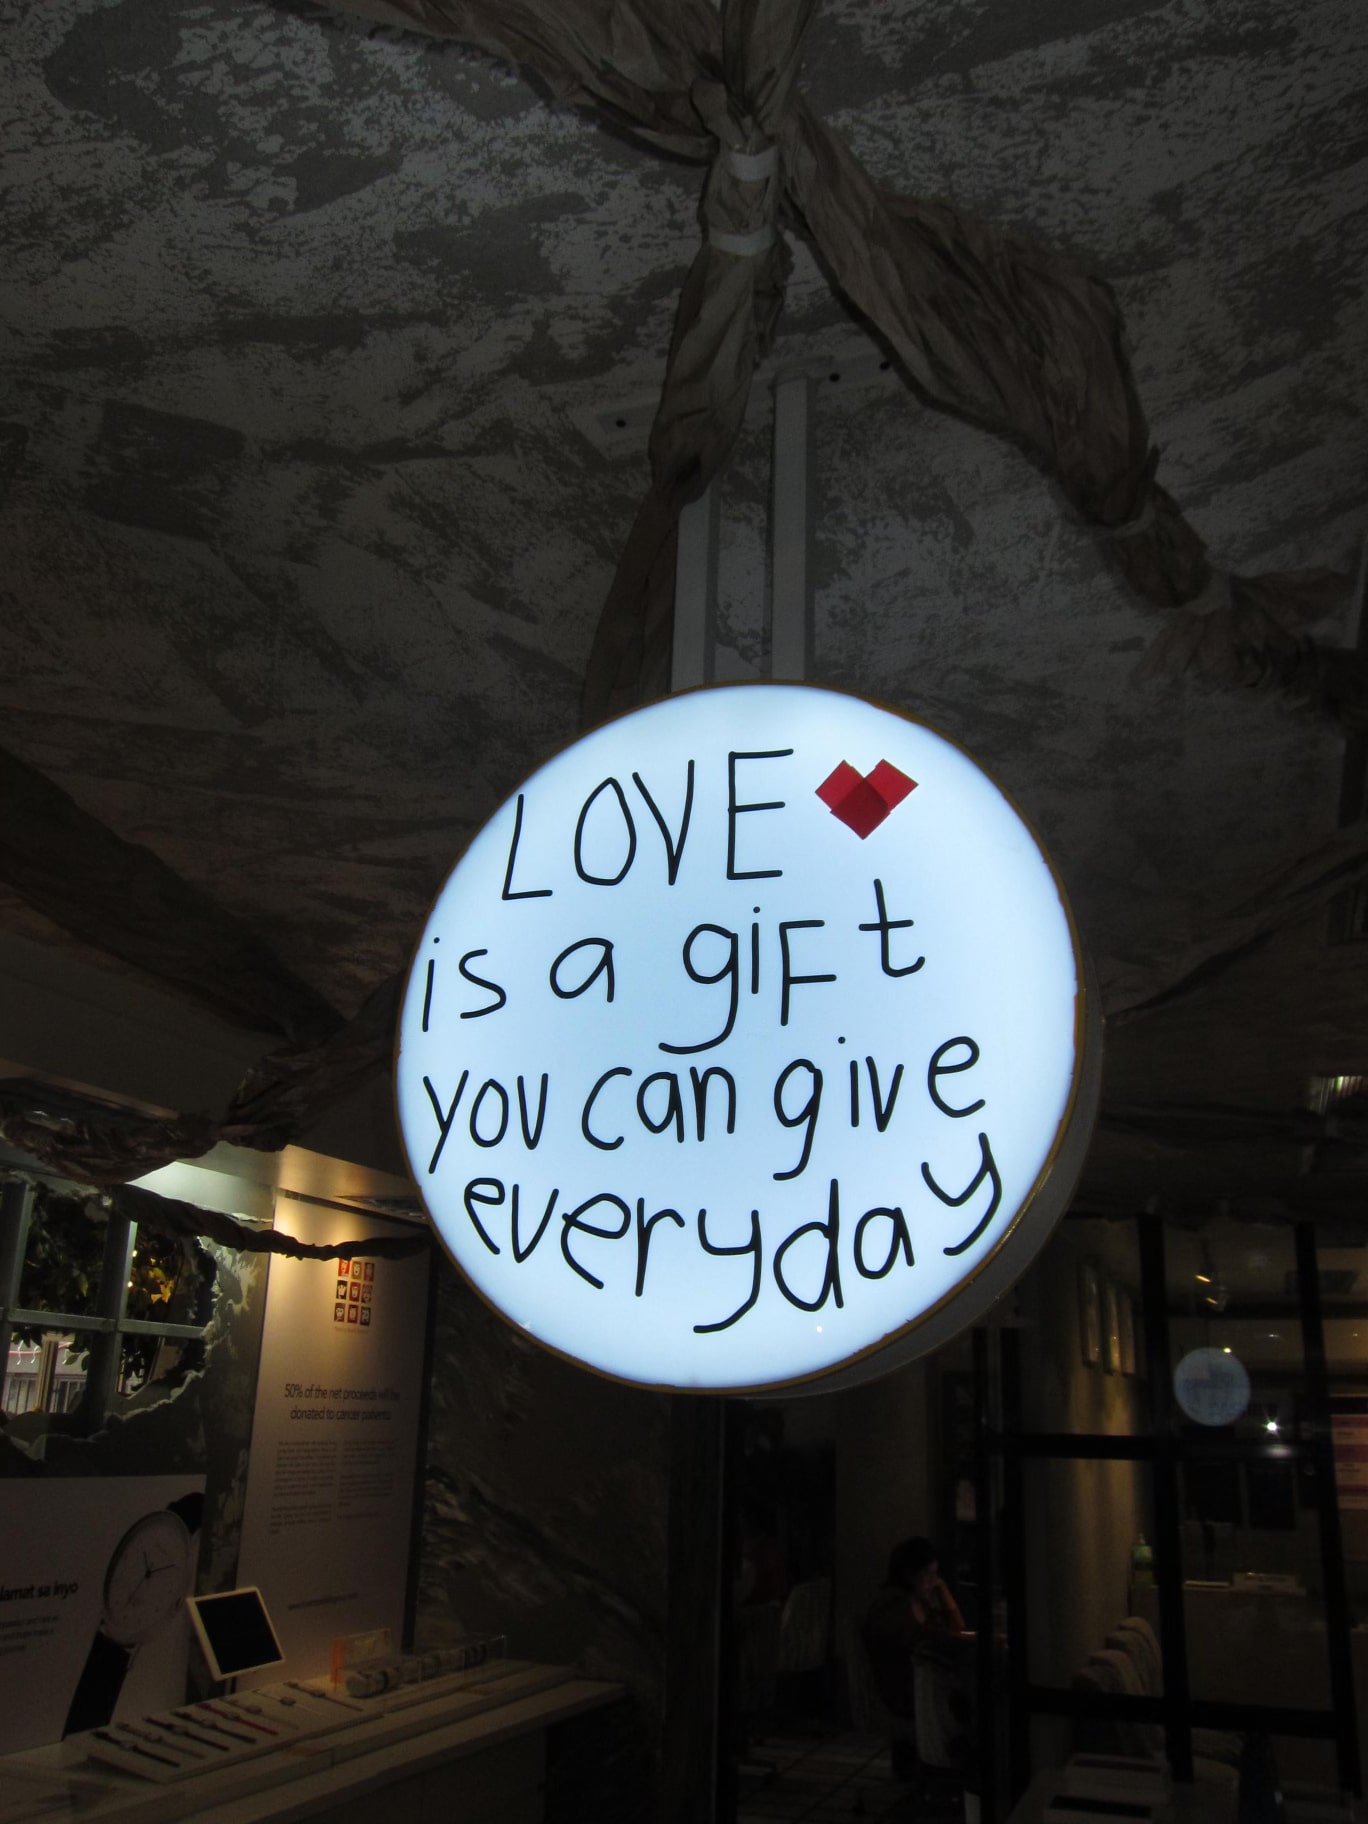 LOVE
is a giFt
you can give
everyday
50% of the net proceeds will be
donated to cancer patients
lamat sa inyo